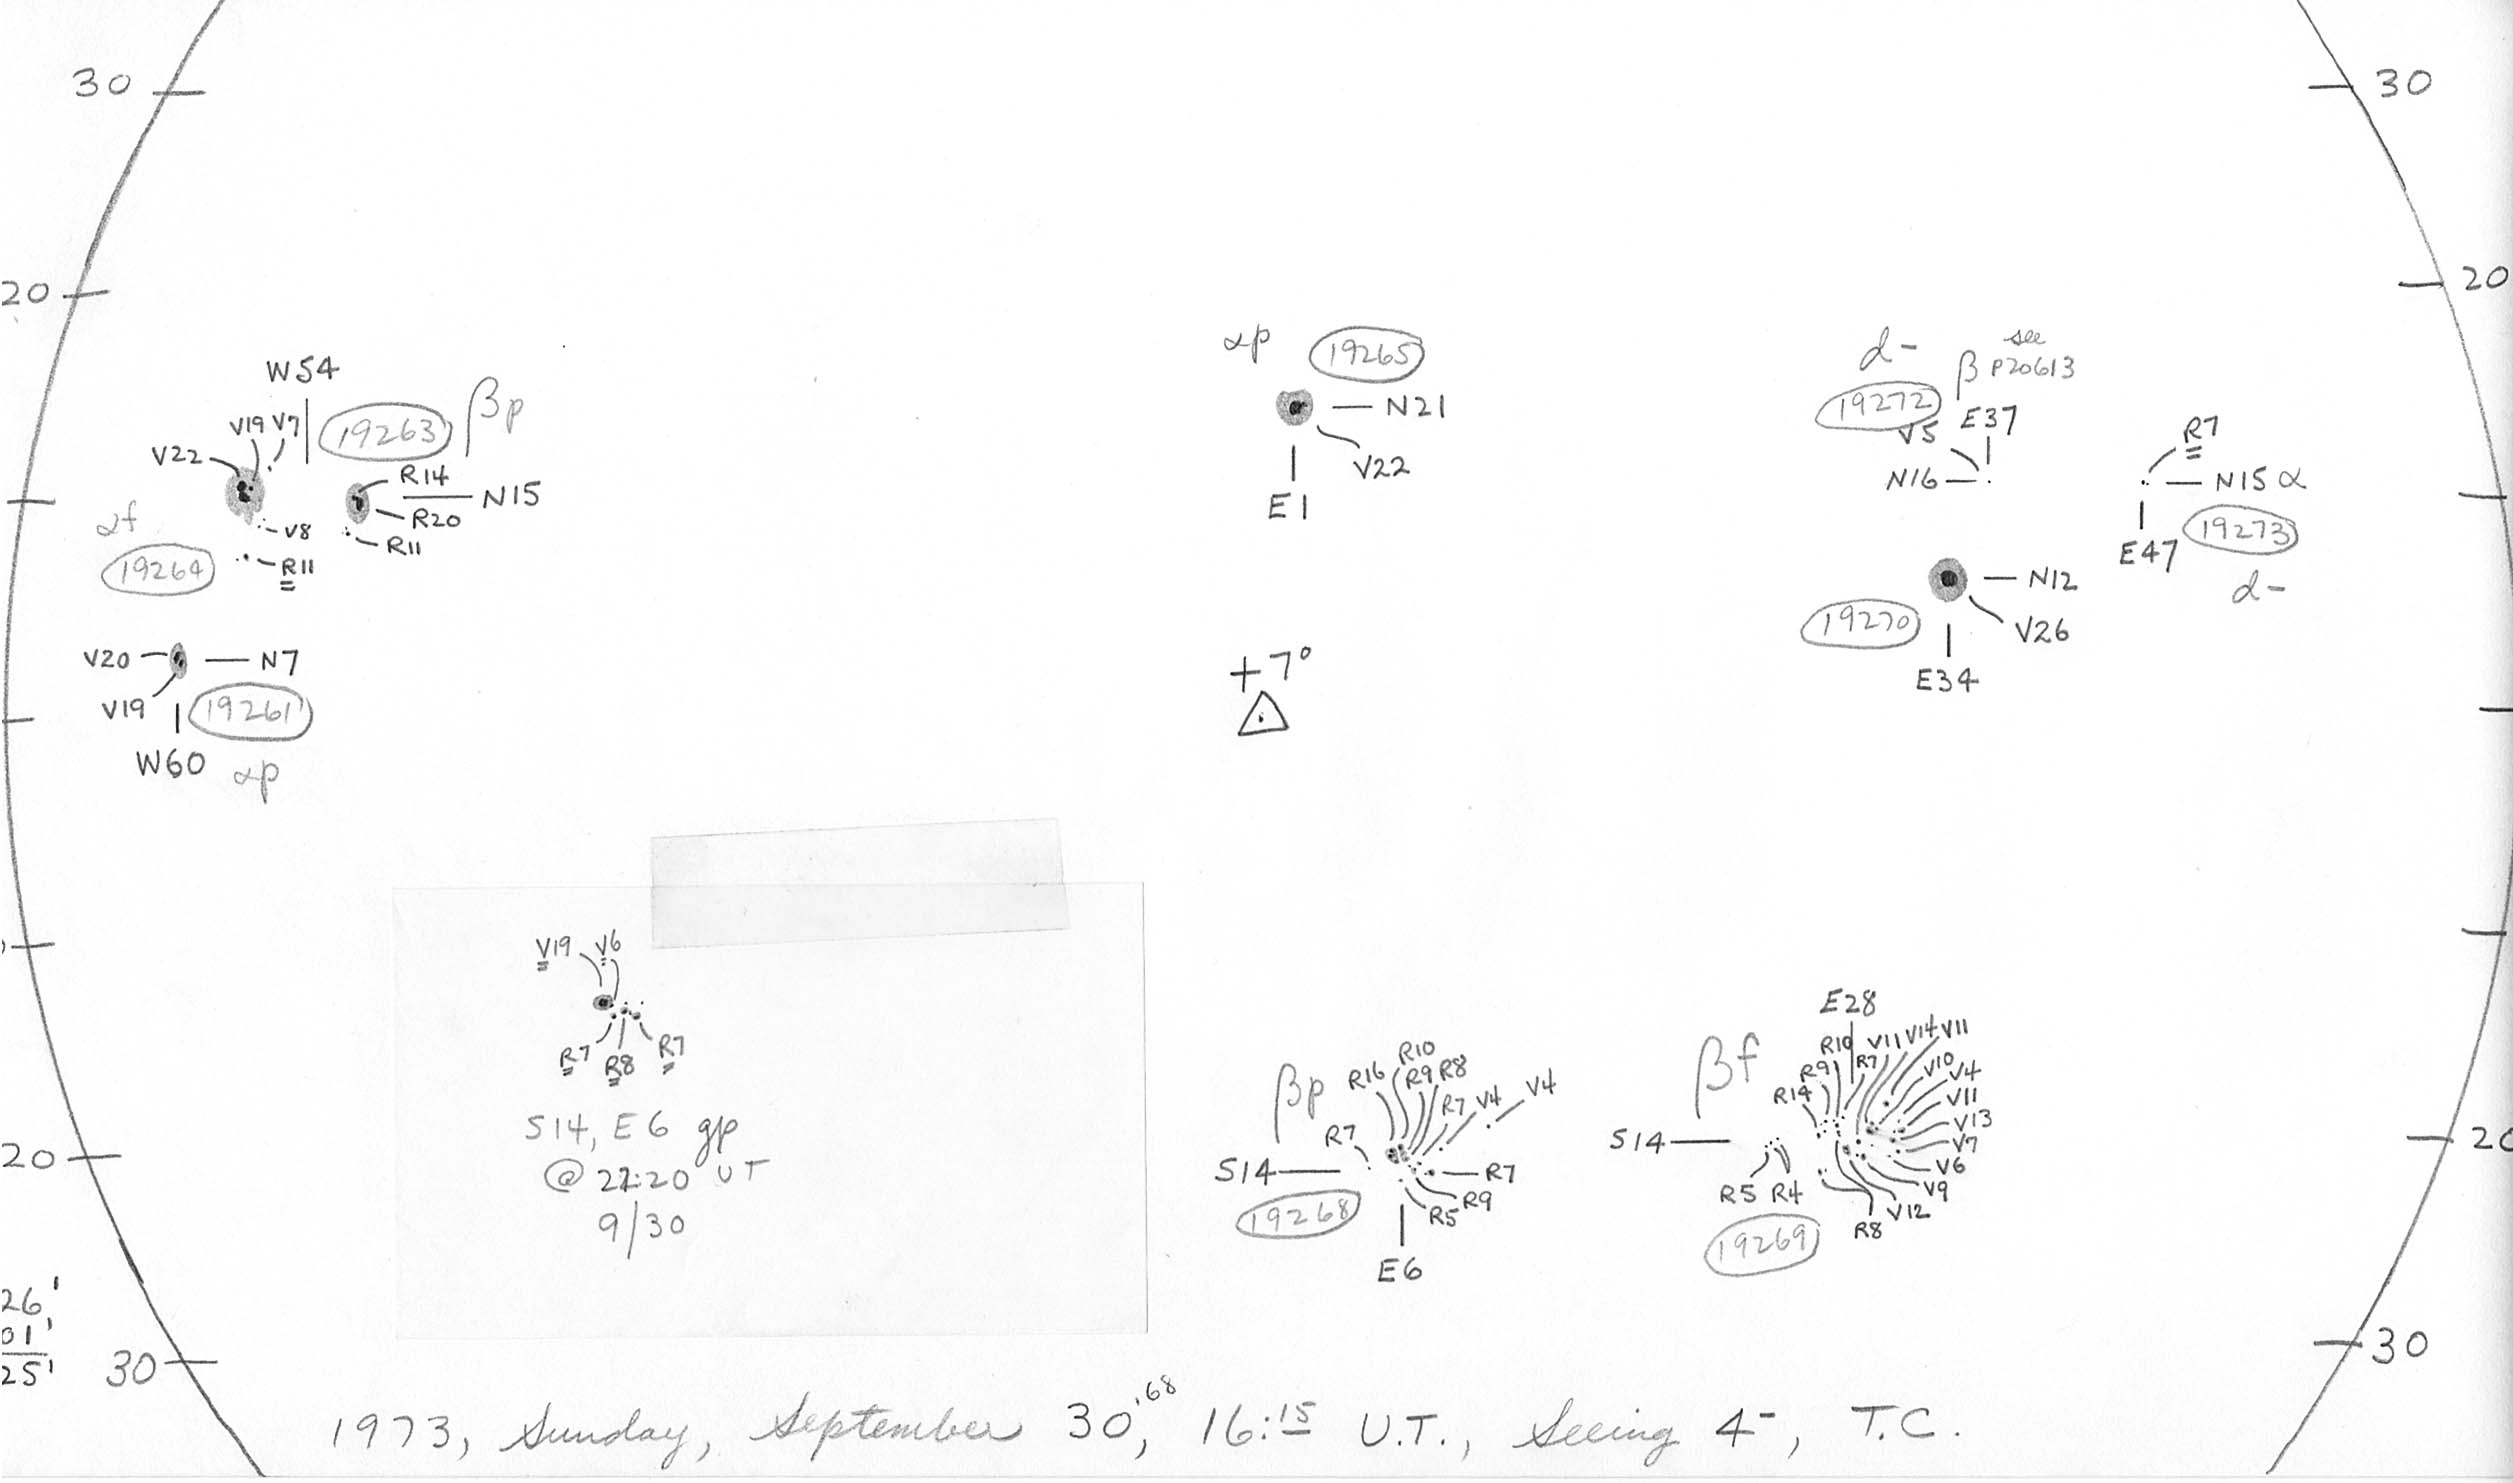 30
30
20
20
W54
V19 V7
V22
19263
βp
R14
N15
R20
R11
αf
V8
19264
R11
V20
N7
V19
19261
W60
αp
αp
19265
N21
V22
E1
+7°
d-
see
β P20613
19272
V5
E37
N16
R7
N15 α
19273
E47
d-
N12
19270
V26
E34
V19 V6
R7
R8
R7
S14, E6 gp
@ 22:20 UT
9/30
βp
R16
R10
R9 R8
R7
V4
V4
R7
S14
R7
19268
R5
R9
E6
βf
E28
R10
V11
V14
V11
R9
R7
V10
V4
R14
V11
V13
S14
V7
V6
R5
R4
V9
V12
R8
19269
20
20
26'
01'
25'
30
30
1973, Sunday, September 30.68, 16:15 U.T., Seeing 4-, T.C.